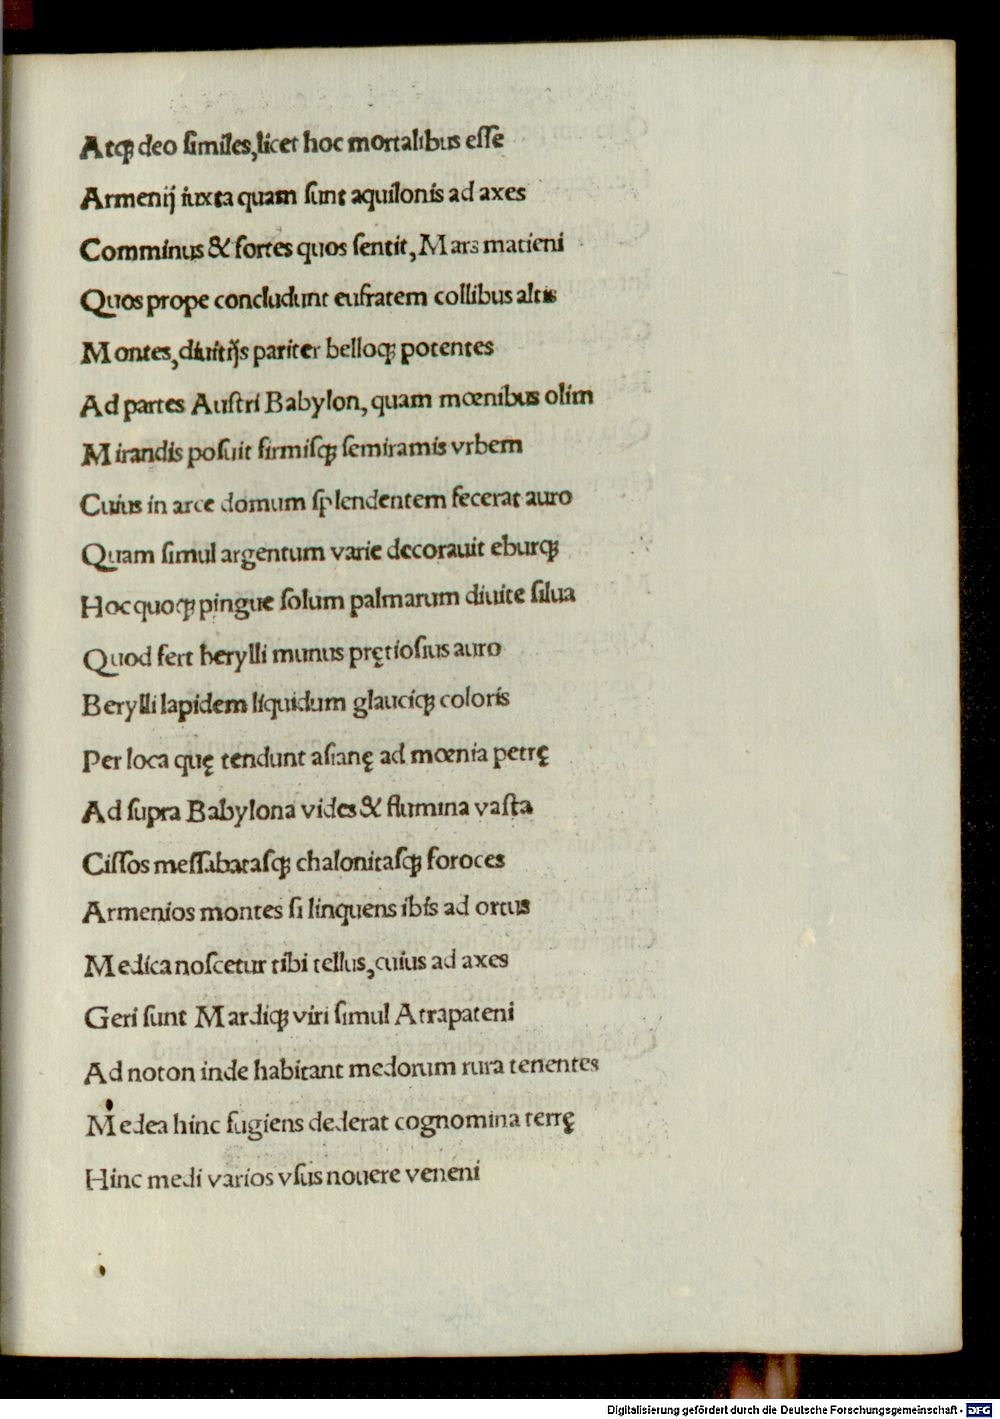 Atqꝫ deo ſimiles,licet hoc mortalibus eſſe
Armenij iuxta quam ſunt aquilonis ad axes
Comminus & fortes quos ſentit, Mars matieni
Quos prope concludunt eufratem collibus altis
Montes,diuitijs pariter belloqꝫ potentes
Ad partes Auſtri Babylon, quam mœnibus olim
Mirandis poſuit firmiſqꝫ ſemiramis vrbem
Cuius in arce domum ſplendentem fecerat auro
Quam ſimul argentum varie decorauit eburqꝫ
Hoc quoqꝫ pingue ſolum palmarum diuite ſilua
Quod fert berylli munus prętioſius auro
Berylli lapidem liquidum glauciqꝫ coloris
Per loca quę tendunt aſianę ad mœnia petrę
Ad ſupra Babylona vides & flumina vaſta
Ciſſos meſſabataſqꝫ chalonitaſqꝫ foroces
Armenios montes ſi linquens ibis ad ortus
Medica noſcetur tibi tellus,cuius ad axes
Geri ſunt Mardiqꝫ viri ſimul Atrapateni
Ad noton inde habitant medorum rura tenentes
Medea hinc fugiens dederat cognomina terrę
Hinc medi varios vſus nouere veneni
Digitalisierung gefördert durch die Deutsche Forschungsgemeinschaft - DFG